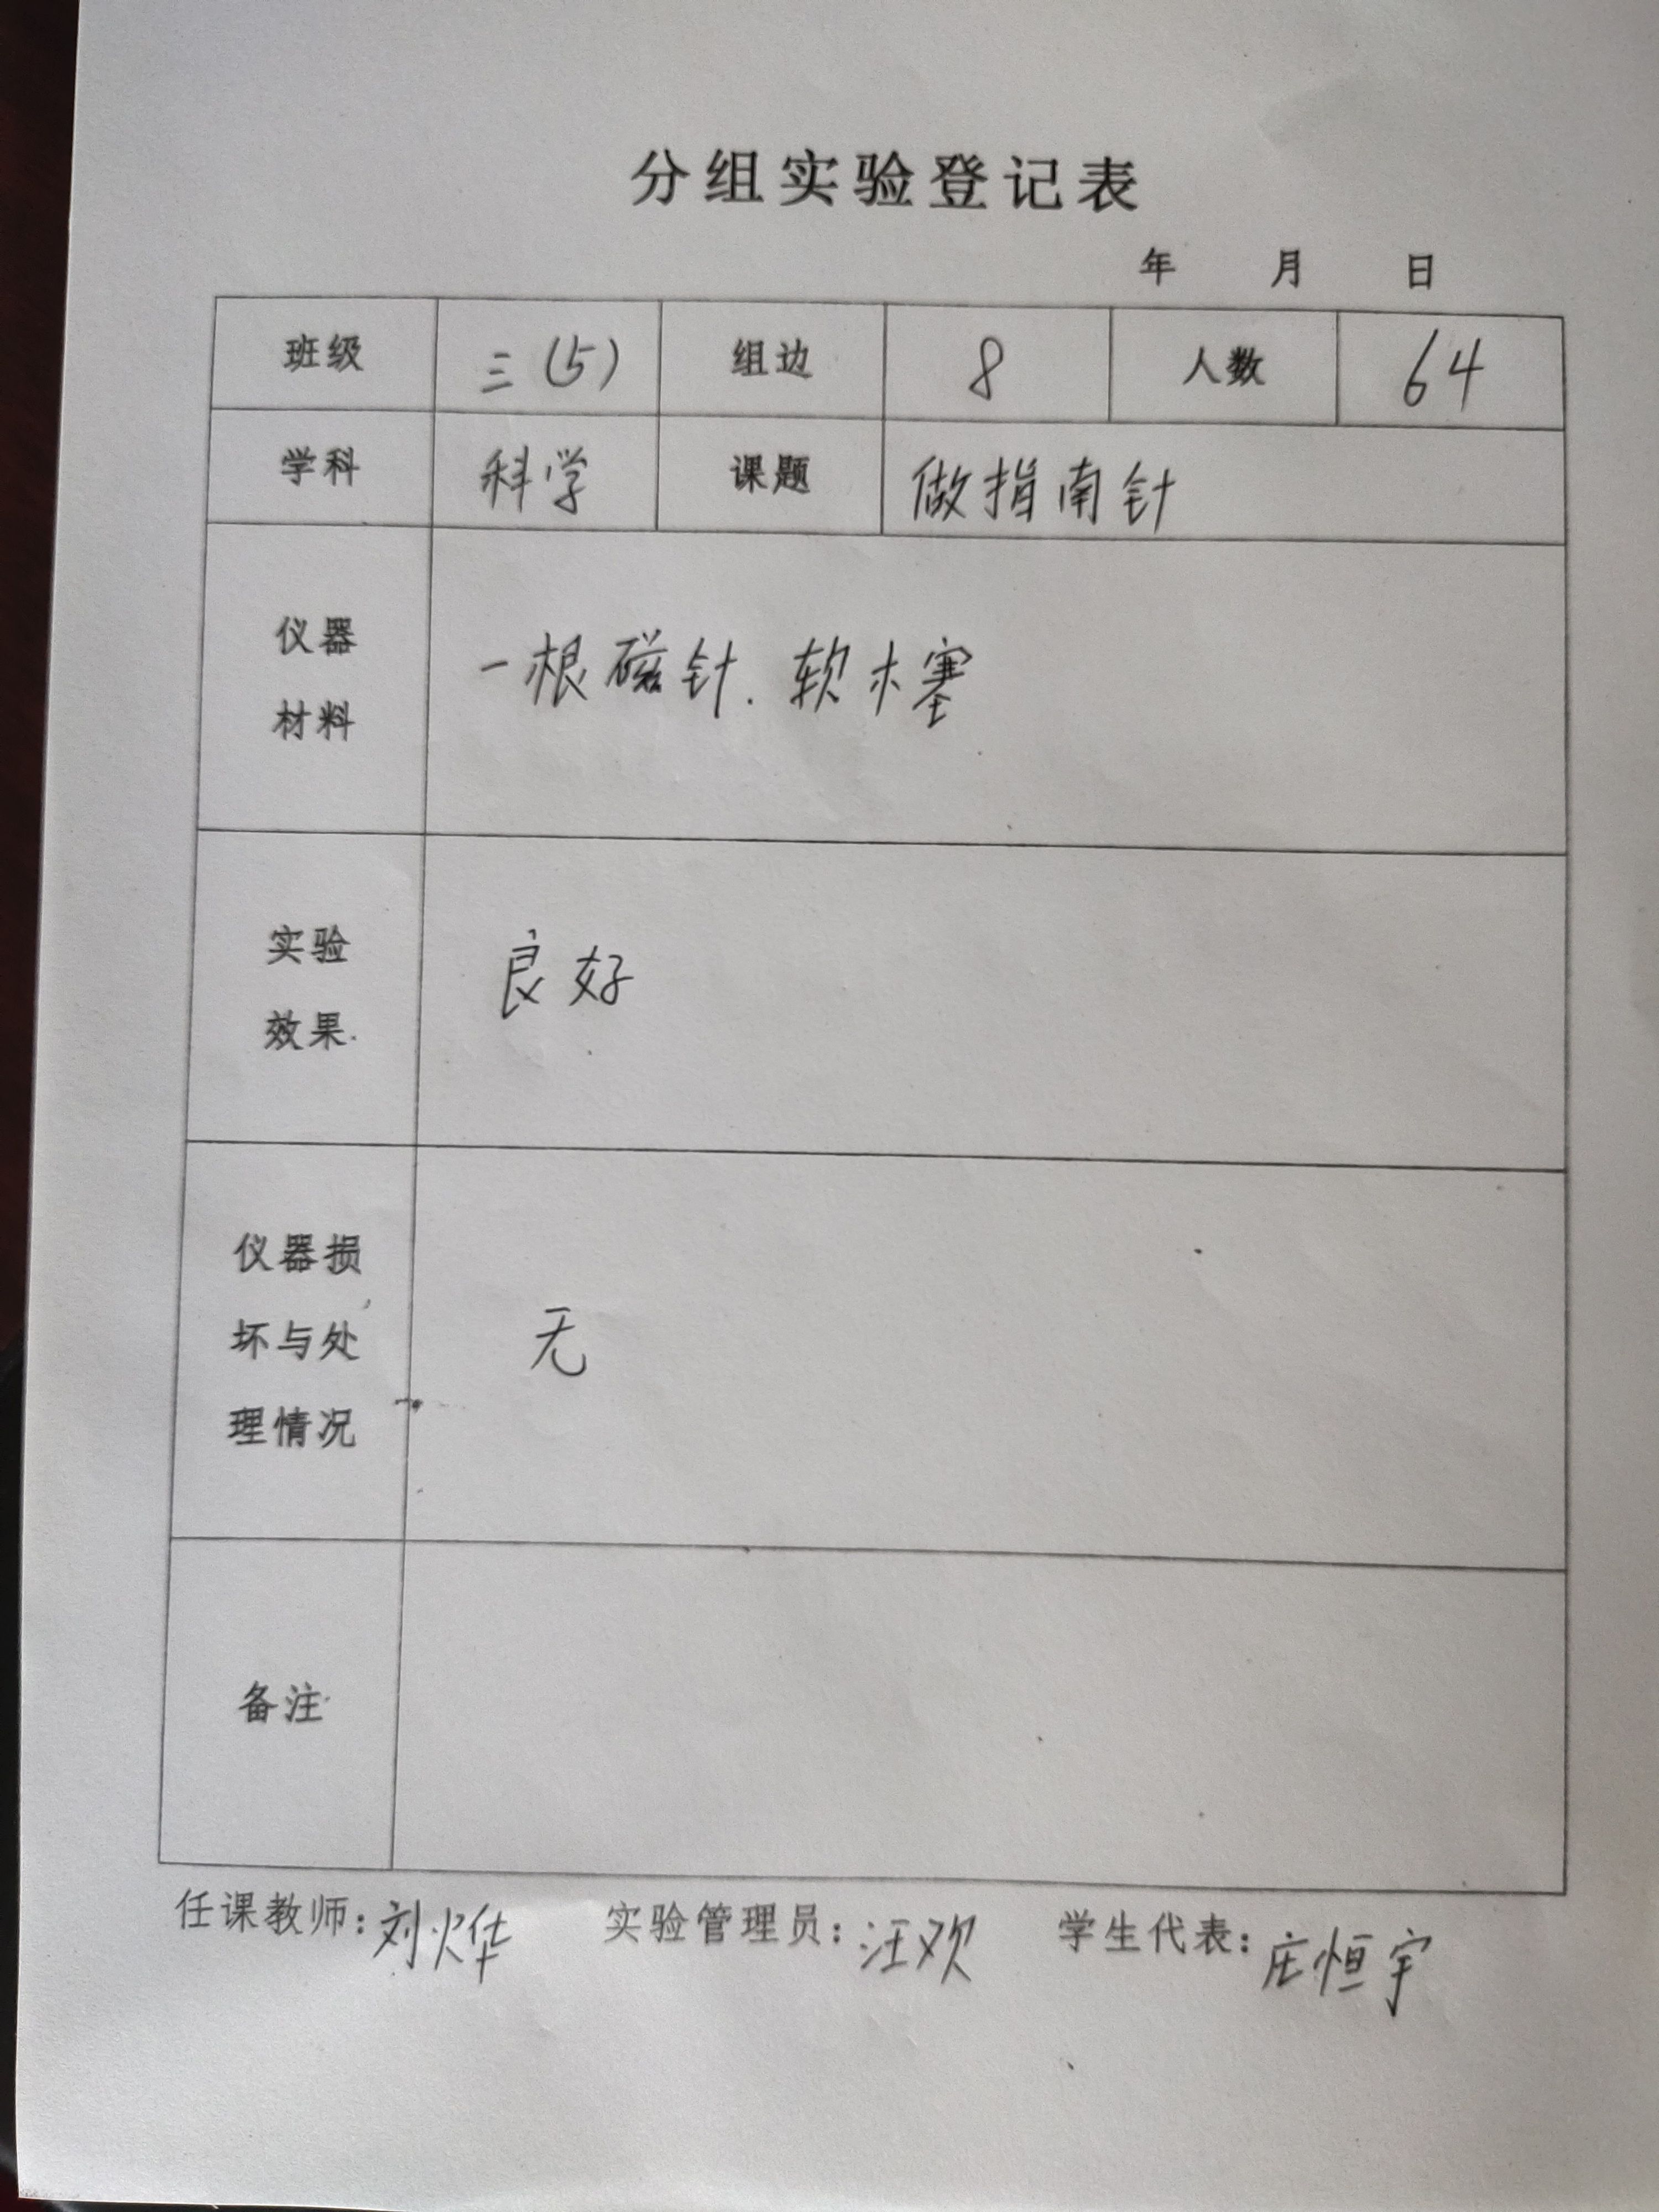 分组实验登记表
年 月 日
班级 三(5) 组边 8 人数 64
学科 科学 课题 做指南针
仪器
材料
一根磁针.软木塞
实验
效果
良好
仪器损
坏与处
理情况
无
备注
任课教师:刘烨 实验管理员:汪欢 学生代表:庄恒宇